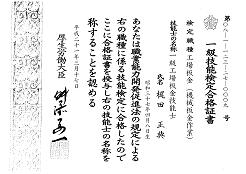 一級技能検定合格証書
検定職種 工場板金（機械板金作業）
技能士の名称 一級工場板金技能士
氏名 梶田 正典
昭和三十七年四月八日生
あなたは職業能力開発促進法の規定による
右の職種に係る技能検定に合格したので
ここに合格証書を授与し右の技能士の名称を
称することを認める
平成二十一年三月十七日
厚生労働大臣